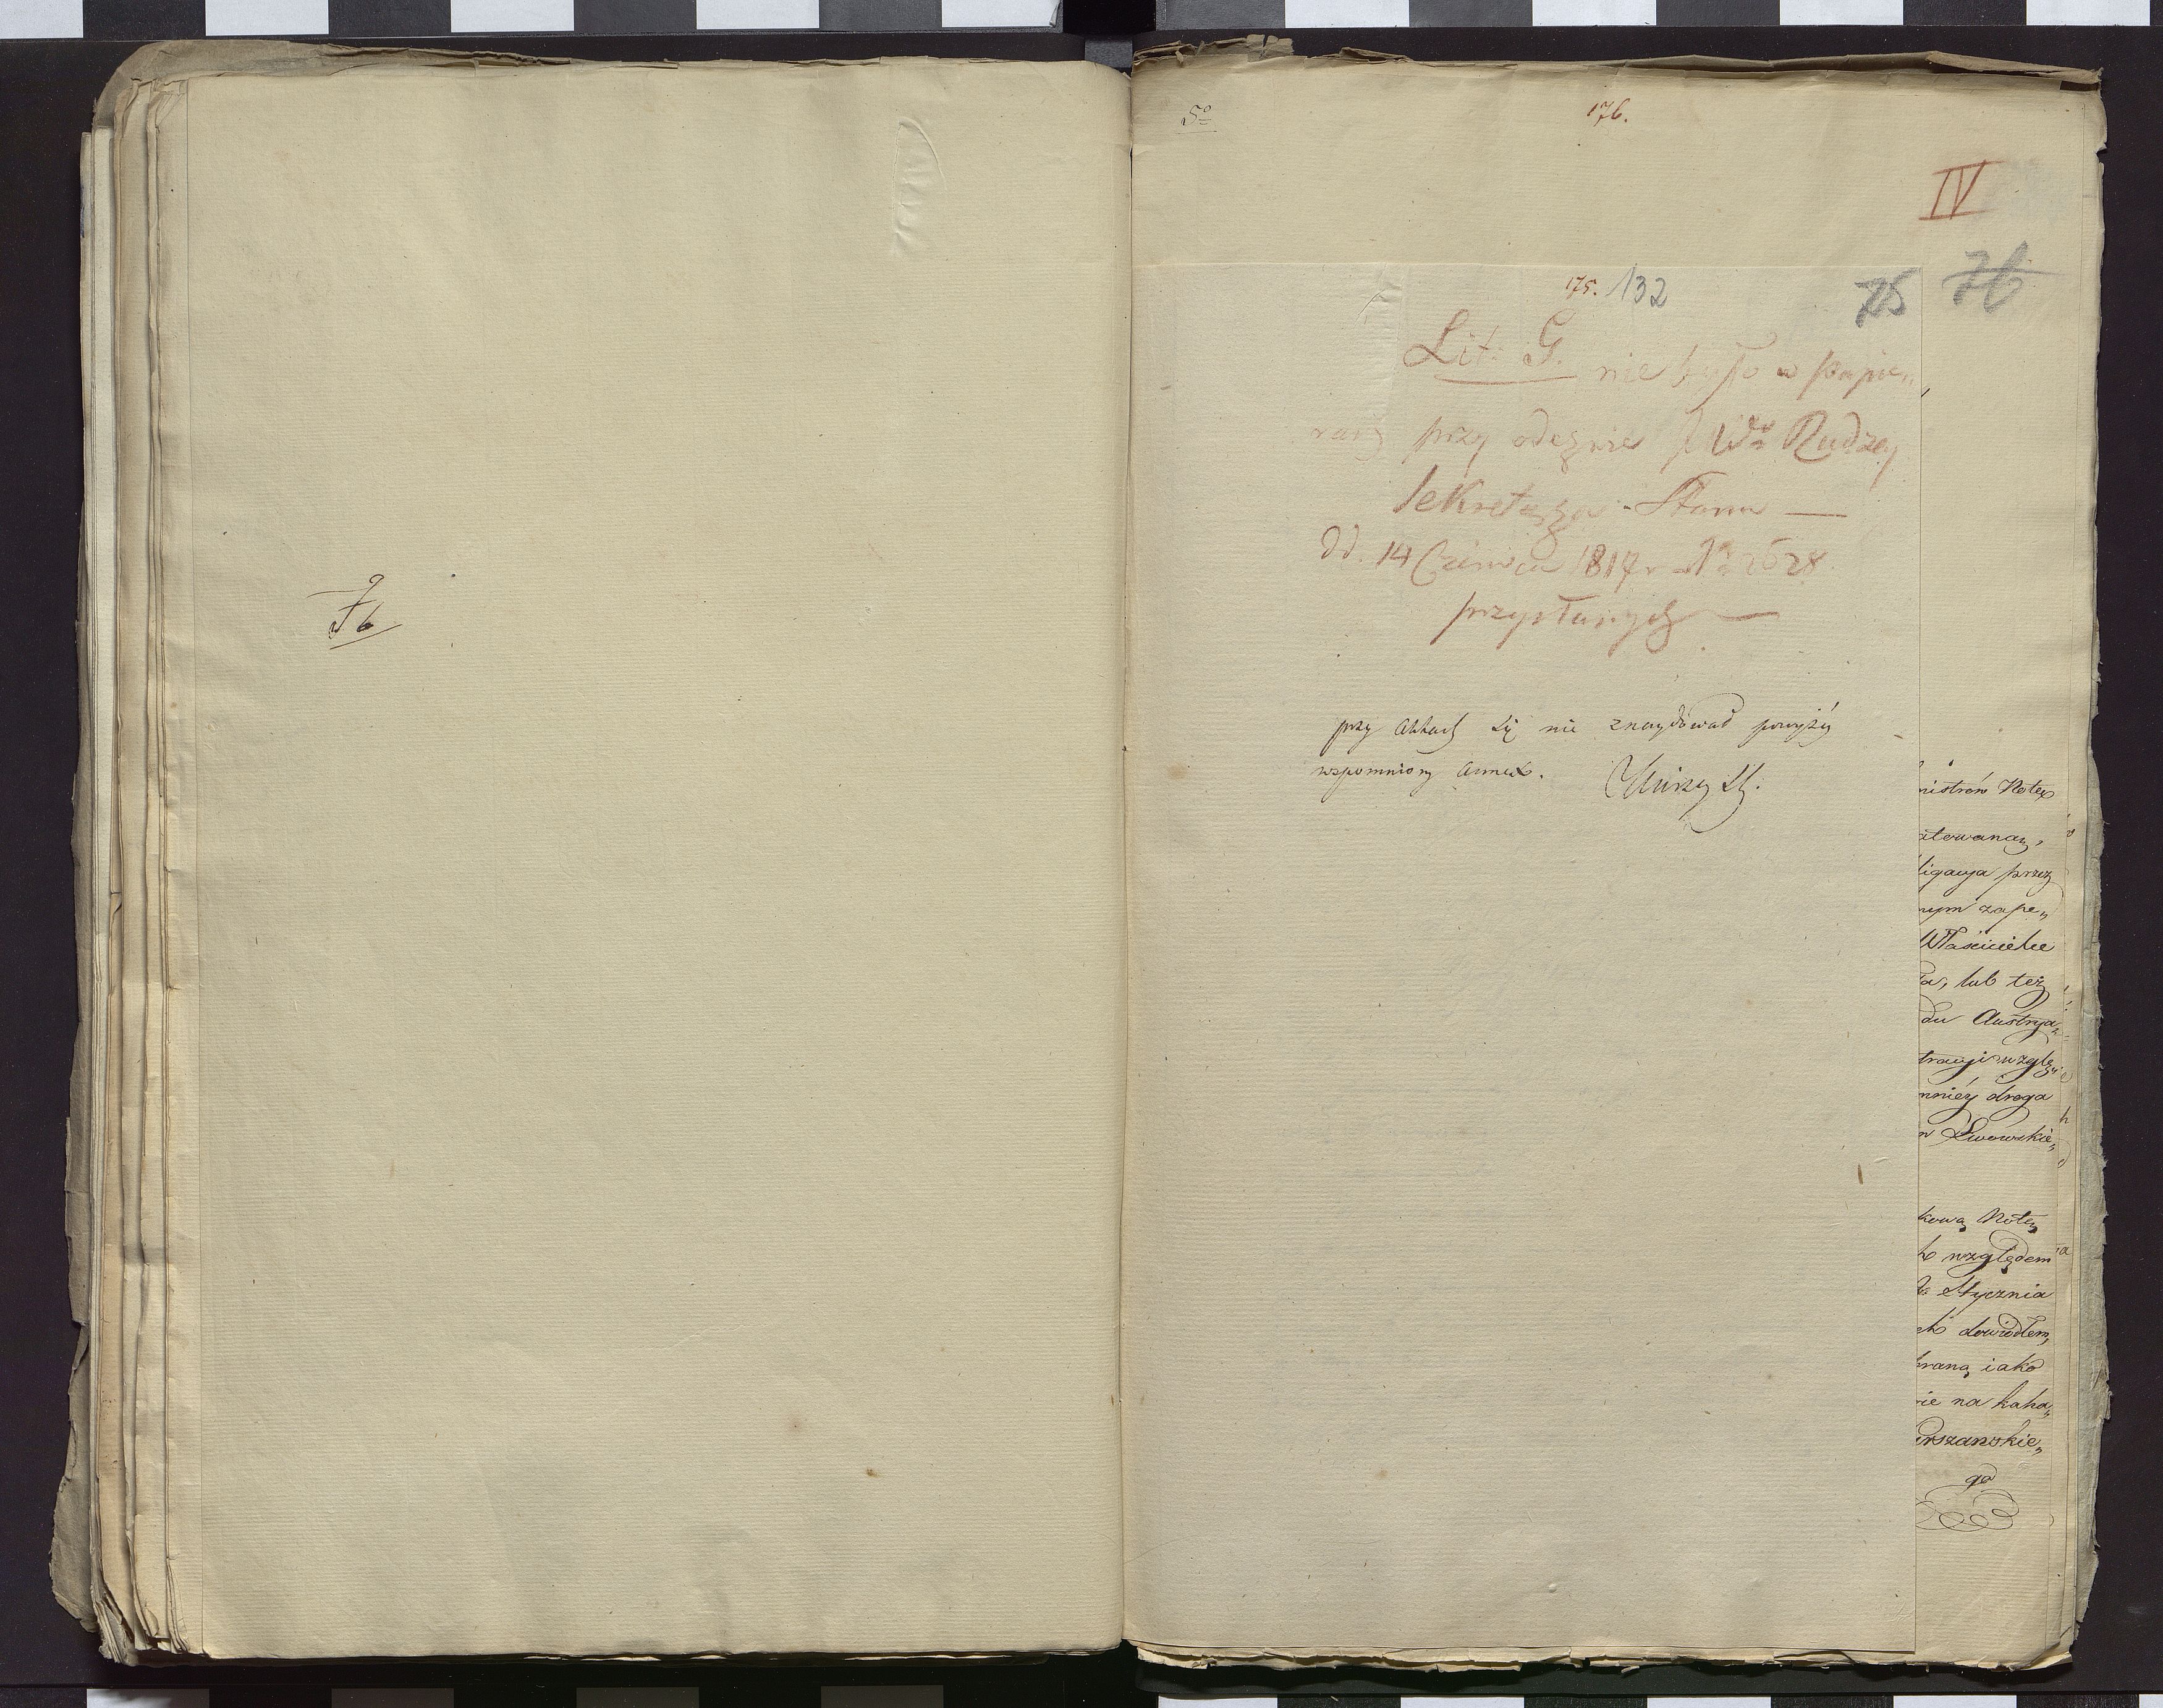 Fb
5o
176.
IV
175. 132
75 76
Lit. G. nie było w papie„
rach przy odezwie JWo
Sekretarza Stanu —
dd. 14 Czerwca 1817 r. No 2628
przysłanych —
przy aktach się nie znaydował powyżéy
wspomniony annex.
nistrów Notę
atowaną,
ligacya przez
nym zape„
Właściciele
ła, lub też
du Austrya„
tracyi wzglę„
mniéy droga
m Lwowskie„
kową Notę
h względem
Stycznia
ch dowiodłem,
braną iako
wie na kaha„
arszawskie„
go